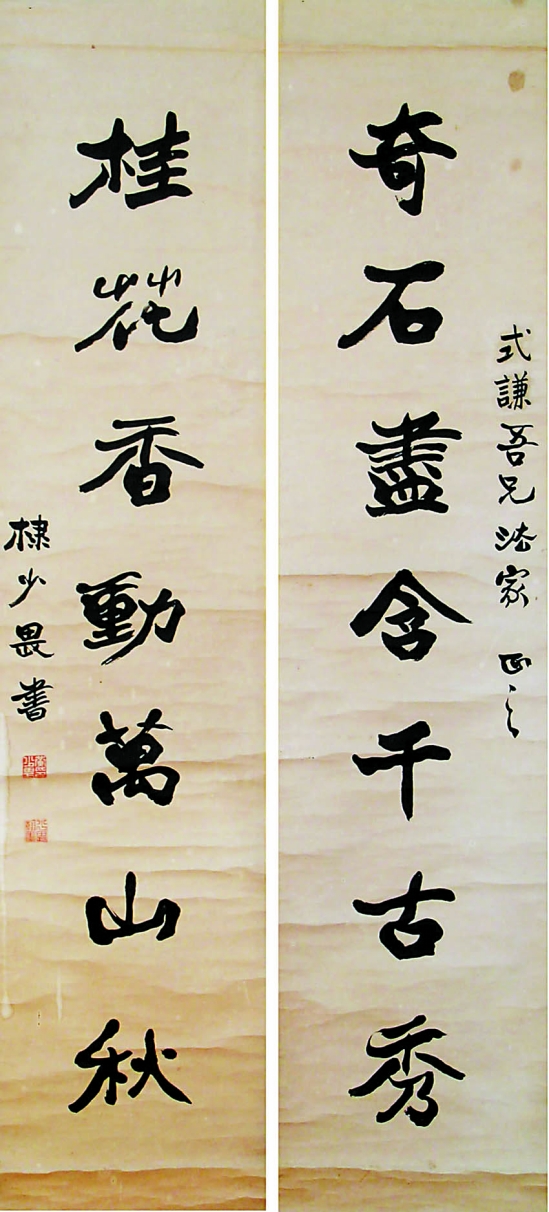 式謙吾兄法家正之
奇石盡含千古秀
桂花香動萬山秋
棣少畏書